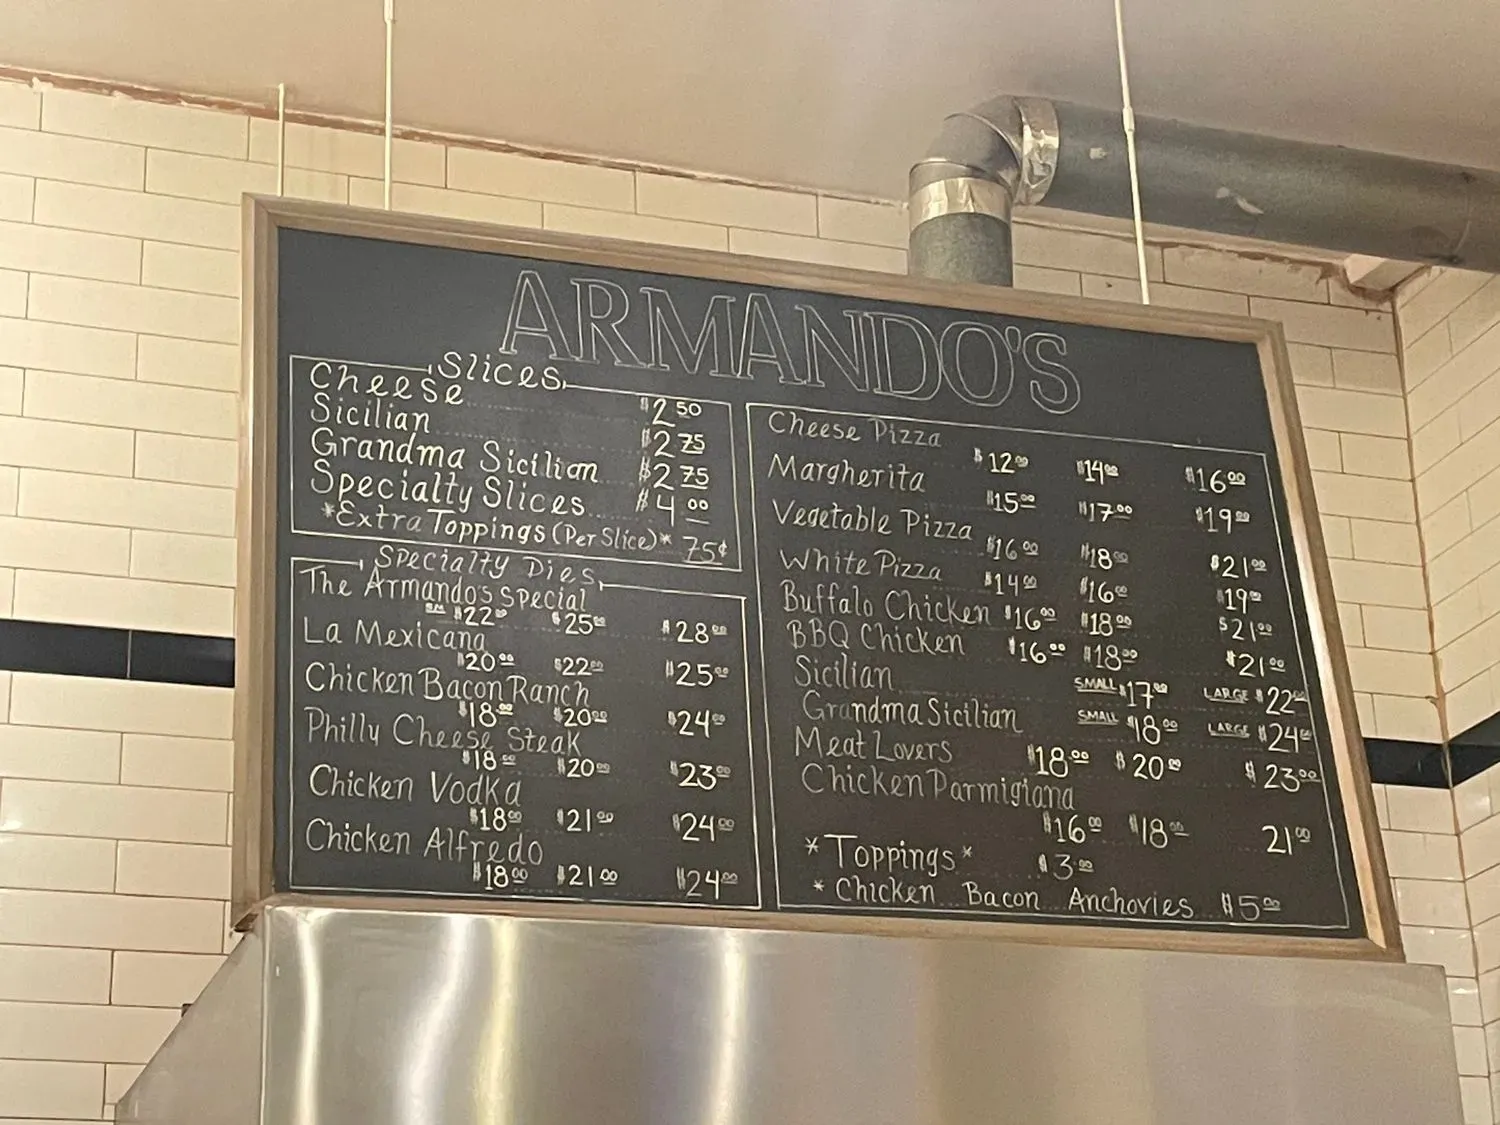 ARMANDO'S
Slices
Cheese $2 50
Sicilian $2 75
Grandma Sicilian $2 75
Specialty Slices $4 00
*Extra Toppings (Per Slice)* 75¢
Specialty Dies
The Armando's Special
SM $22 00 $25 00 $28 00
La Mexicana
$20 00 $22 00 $25 00
Chicken Bacon Ranch
$18 00 $20 00 $24 00
Philly Cheese Steak
$18 00 $20 00 $23 00
Chicken Vodka
$18 00 $21 00 $24 00
Chicken Alfredo
$18 00 $21 00 $24 00
Cheese Pizza $12 00 $14 00 $16 00
Margherita $15 00 $17 00 $19 00
Vegetable Pizza $16 00 $18 00 $21 00
White Pizza $14 00 $16 00 $19 00
Buffalo Chicken $16 00 $18 00 $21 00
BBQ Chicken $16 00 $18 00 $21 00
Sicilian SMALL $17 00 LARGE $22 00
Grandma Sicilian SMALL $18 00 LARGE $24 00
Meat Lovers $18 00 $20 00 $23 00
Chicken Parmigiana
$16 00 $18 00 21 00
*Toppings* $3 00
*Chicken Bacon Anchovies $5 00